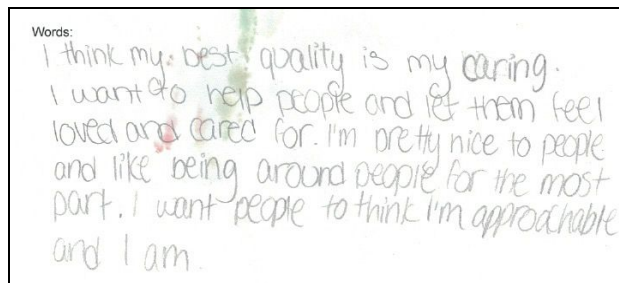 Words:
I think my best quality is my caring.
I want to help people and let them feel
loved and cared for. I'm pretty nice to people
and like being around people for the most
part. I want people to think I'm approachable
and I am.